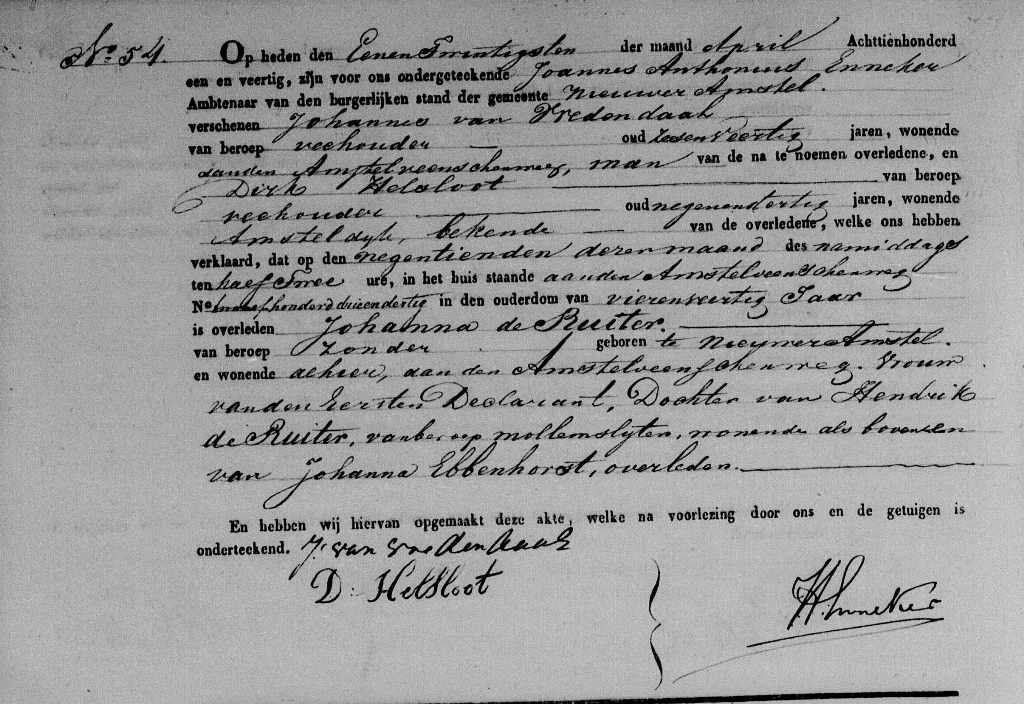 No. 54. Op heden den Eenen Twintigsten der maand April Achttienhonderd
een en veertig, zijn voor ons ondergeteekende Joannes Anthonius Enneker
Ambtenaar van den burgerlijken stand der gemeente Nieuwer Amstel.
verschenen Johannes van Vredendaal
van beroep veehouder oud zesenveertig jaren, wonende
aanden Amstelveenschenweg, man van de na te noemen overledene, en
Dirk Helsloot van beroep
veehouder oud negenendertig jaren, wonende
Amsteldyk, bekende van de overledene, welke ons hebben
verklaard, dat op den negentienden dezer maand des namiddags
ten half Twee ure, in het huis staande aanden Amstelveenschenweg
No honderd drieendertig in den ouderdom van vierenveertig Jaar
is overleden Johanna de Ruiter.
van beroep zonder geboren te Nieuwer Amstel.
en wonende alhier, aan den Amstelveenschenweg. Vrouw
vanden Eersten Declarant, Dochter van Hendrik
de Ruiter, van beroep wonende als boven en
van Johanna Ebbenhorst, overleden.
En hebben wij hiervan opgemaakt deze akte, welke na voorlezing door ons en de getuigen is
onderteekend. J. van Vredendaal
D: Helsloot
Enneker